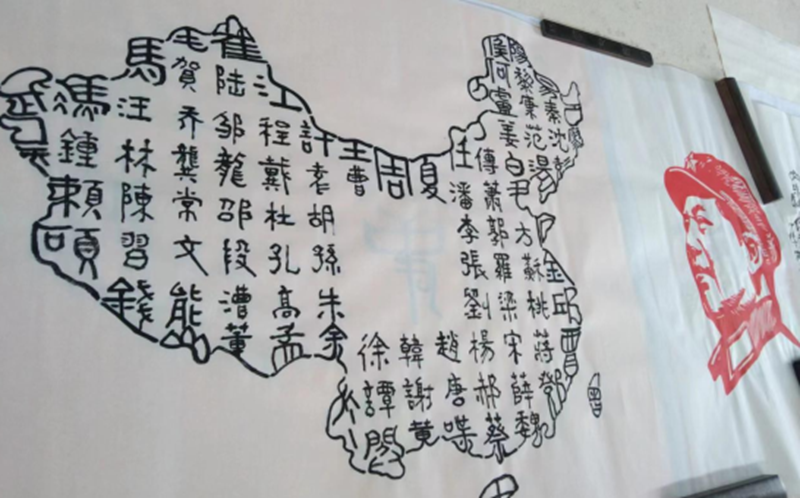 馮鍾賴項
馬汪林陳習錢
毛賀乔龔常文能
崔陆邹龍邵段漕董
江程戴杜孔高孟
許袁胡孫朱余
王曹
周
夏
任潘李張劉
傅蕭郭羅梁
侯何盧姜白尹方蘇桃
陽黎康范湯
易秦沈彭
金邱賈
徐譚閻
韓謝黄
趙唐喋
楊郝蔡
宋薛魏
蔣鄧